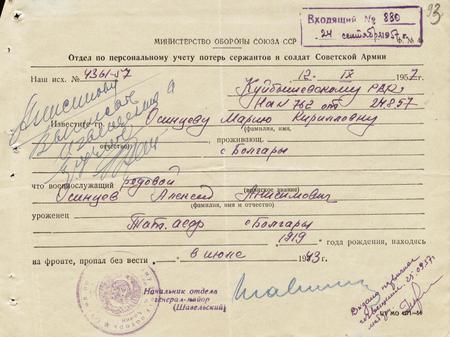 93
Входящий № 880
24 сентября 1957 г.
МИНИСТЕРСТВО ОБОРОНЫ СОЮЗА ССР
Отдел по персональному учету потерь сержантов и солдат Советской Армии
Наш исх. № 4361-57
12 - IX 1957 г.
Куйбышевскому РВК
На № 762 от 24857
Известите гр. Осинцеву Марию Кирилловну
(фамилия, имя,
отчество)
проживающ.
с Болгары
что военнослужащий рядовой
(воинское звание)
Осинцев Алексей Анисимович
(фамилия, имя и отчество)
уроженец Тат. асср с Болгары
1919 года рождения, находясь
на фронте, пропал без вести в июне 1943 г.
Начальник отдела
генерал-майор
(Шавельский)